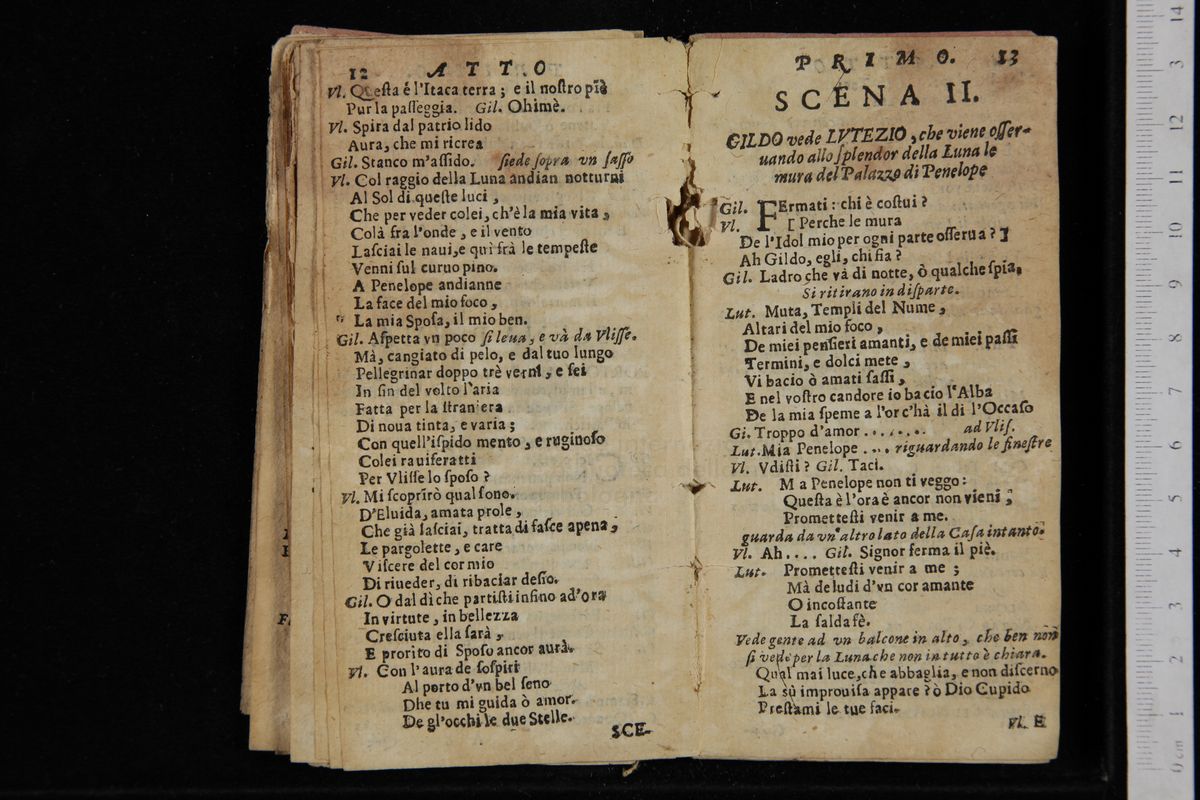 12 ATTO
Vl. Questa é l'Itaca terra; e il nostro piã
Pur la passeggia. Gil. Ohimè.
Vl. Spira dal patrio lido
Aura, che mi ricrea
Gil. Stanco m'assido. siede sopra vn sasso
Vl. Col raggio della Luna andian notturni
Al Sol di queste luci,
Che per veder colei, ch'è la mia vita,
Colà fra l'onde, e il vento
Lasciai le naui, e quì frà le tempeste
Venni sul curuo pino.
A Penelope andianne
La face del mio foco,
La mia Sposa, il mio ben.
Gil. Aspetta vn poco si leua, e và da Vlisse.
Mà, cangiato di pelo, e dal tuo lungo
Pellegrinar doppo trè verni, e sei
In sin del volto l'aria
Fatta per la straniera
Di noua tinta, e varia;
Con quell'ispido mento, e ruginoso
Colei rauiseratti
Per Vlisse lo sposo?
Vl. Mi scoprirò qual sono.
D'Eluida, amata prole,
Che già lasciai, tratta di fasce apena,
Le pargolette, e care
Viscere del cor mio
Di riueder, di ribaciar desio.
Gil. O dal dì che partisti insino ad'ora
In virtute, in bellezza
Cresciuta ella sarà,
E prorito di Sposo ancor aurà.
Vl. Con l'aura de sospiri
Al porto d'vn bel seno
Dhe tu mi guida ò amor.
De gl'occhi le due Stelle.
SCE-
PRIMO. 13
SCENA II.
GILDO vede LVTEZIO, che viene osser-
uando allo splendor della Luna le
mura del Palazzo di Penelope
Gil. FErmati: chi è costui?
Vl. [Perche le mura
De l'Idol mio per ogni parte osserua?]
Ah Gildo, egli, chi sia?
Gil. Ladro che và di notte, ò qualche spia.
Si ritirano in disparte.
Lut. Muta, Templi del Nume,
Altari del mio foco,
De miei pensieri amanti, e de miei passi
Termini, e dolci mete,
Vi bacio ò amati sassi,
E nel vostro candore io bacio l'Alba
De la mia speme a l'or c'hà il dì l'Occaso
Gi. Troppo d'amor ....... ad Vlis.
Lut. Mia Penelope .... riguardando le finestre
Vl. Vdisti? Gil. Taci.
Lut. Ma Penelope non ti veggo:
Questa è l'ora è ancor non vieni;
Promettesti venir a me.
guarda da vn'altro lato della Casa intanto.
Vl. Ah.... Gil. Signor ferma il piè.
Lut. Promettesti venir a me;
Mà deludi d'vn cor amante
O incostante
La salda fè.
Vede gente ad vn balcone in alto, che ben non
si vede per la Luna che non in tutto è chiara.
Qual mai luce, che abbaglia, e non discerno
La sù improuisa appare? ò Dio Cupido
Prestami le tue faci.
Vl. E